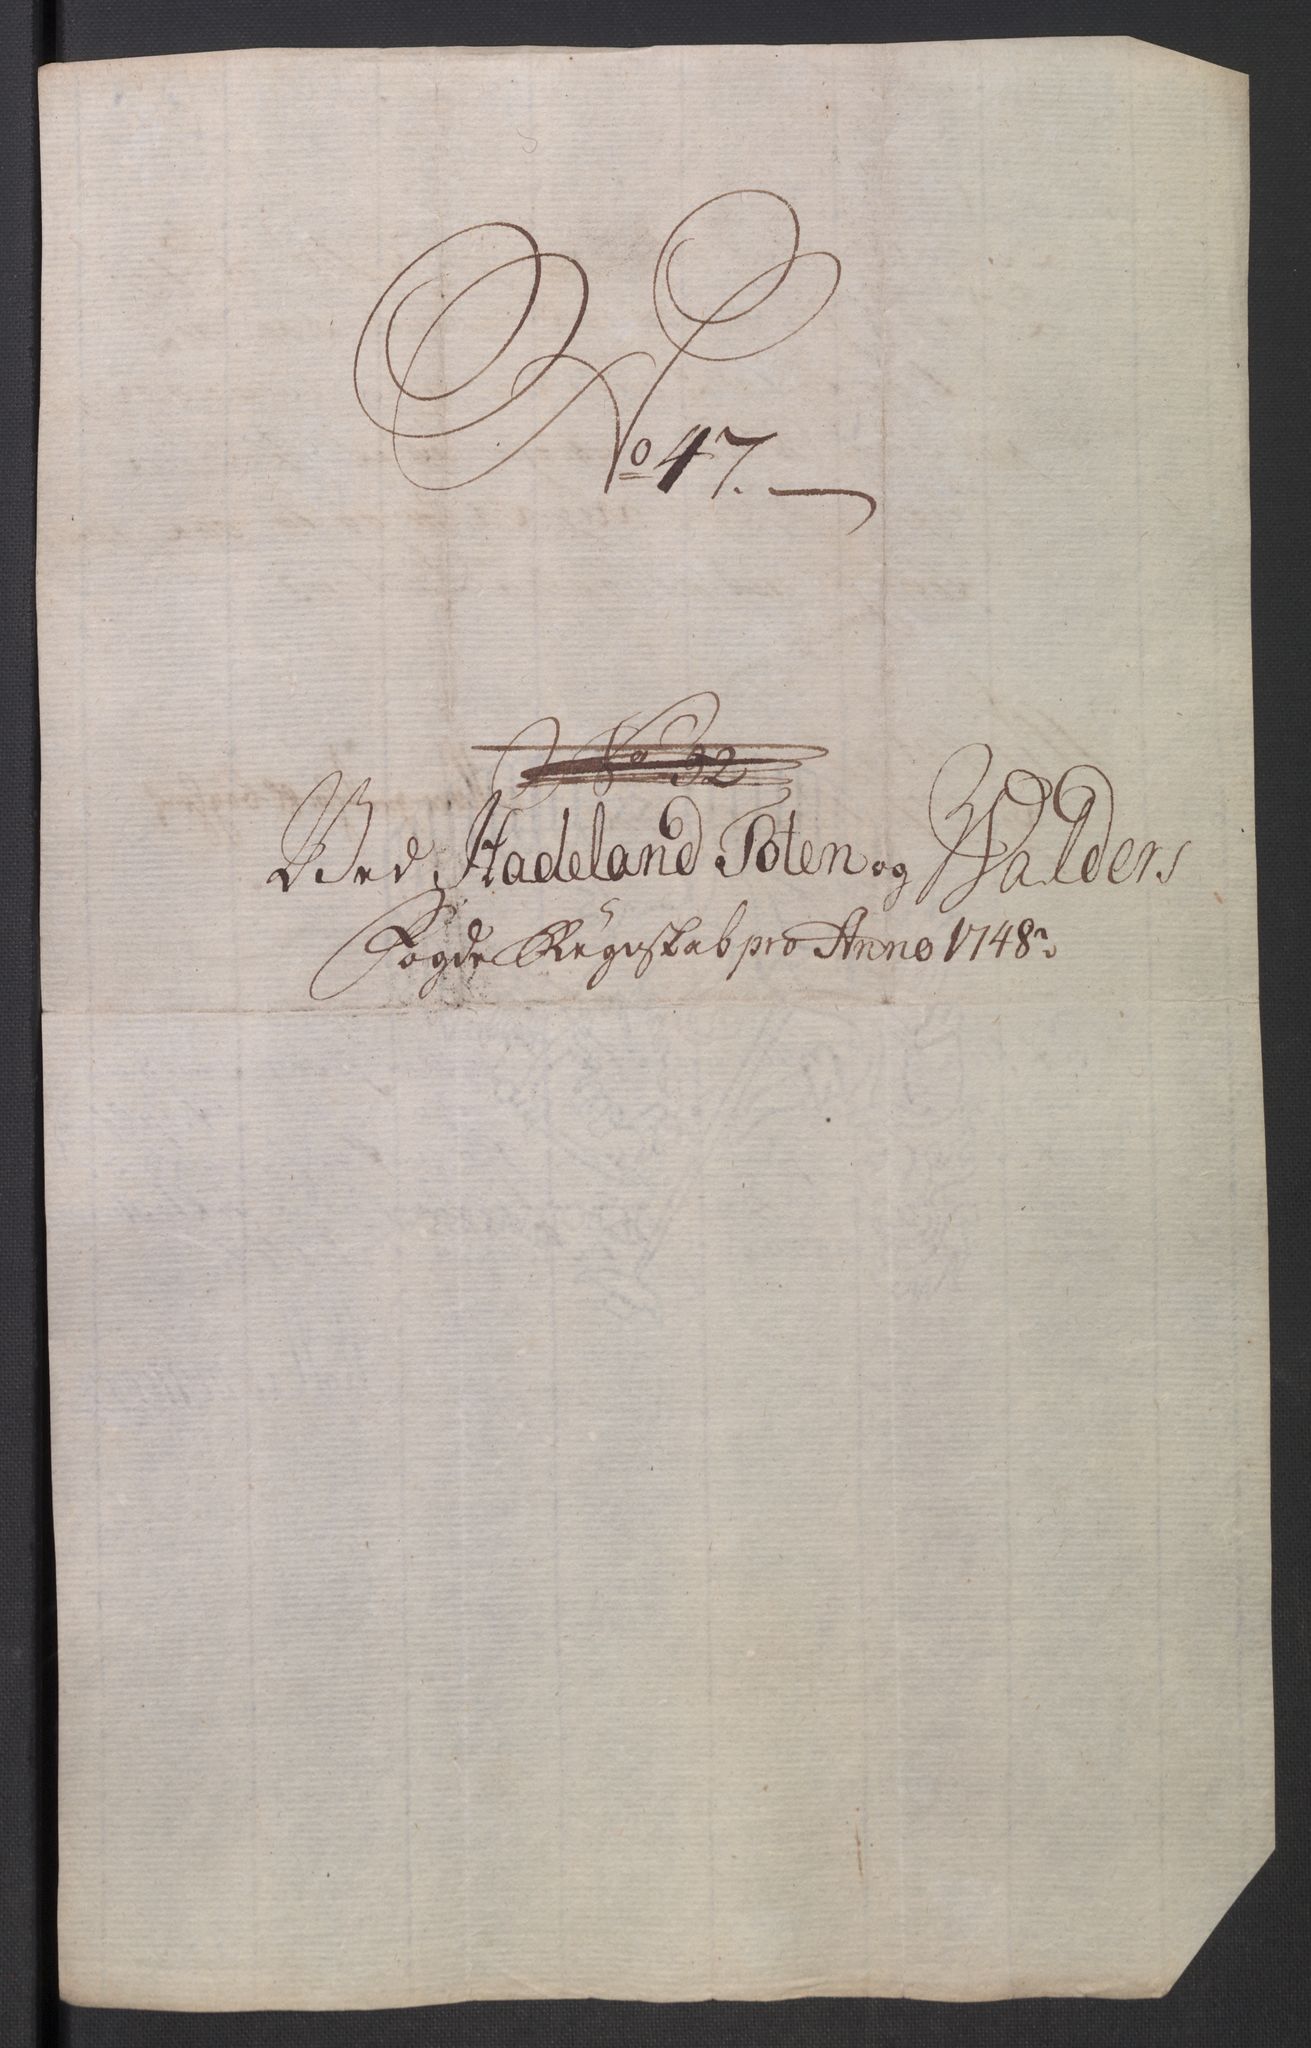 No 47.
No 32
Ved Hadeland Toten og Walders
Fogde Regnskab pro Anno 1748.